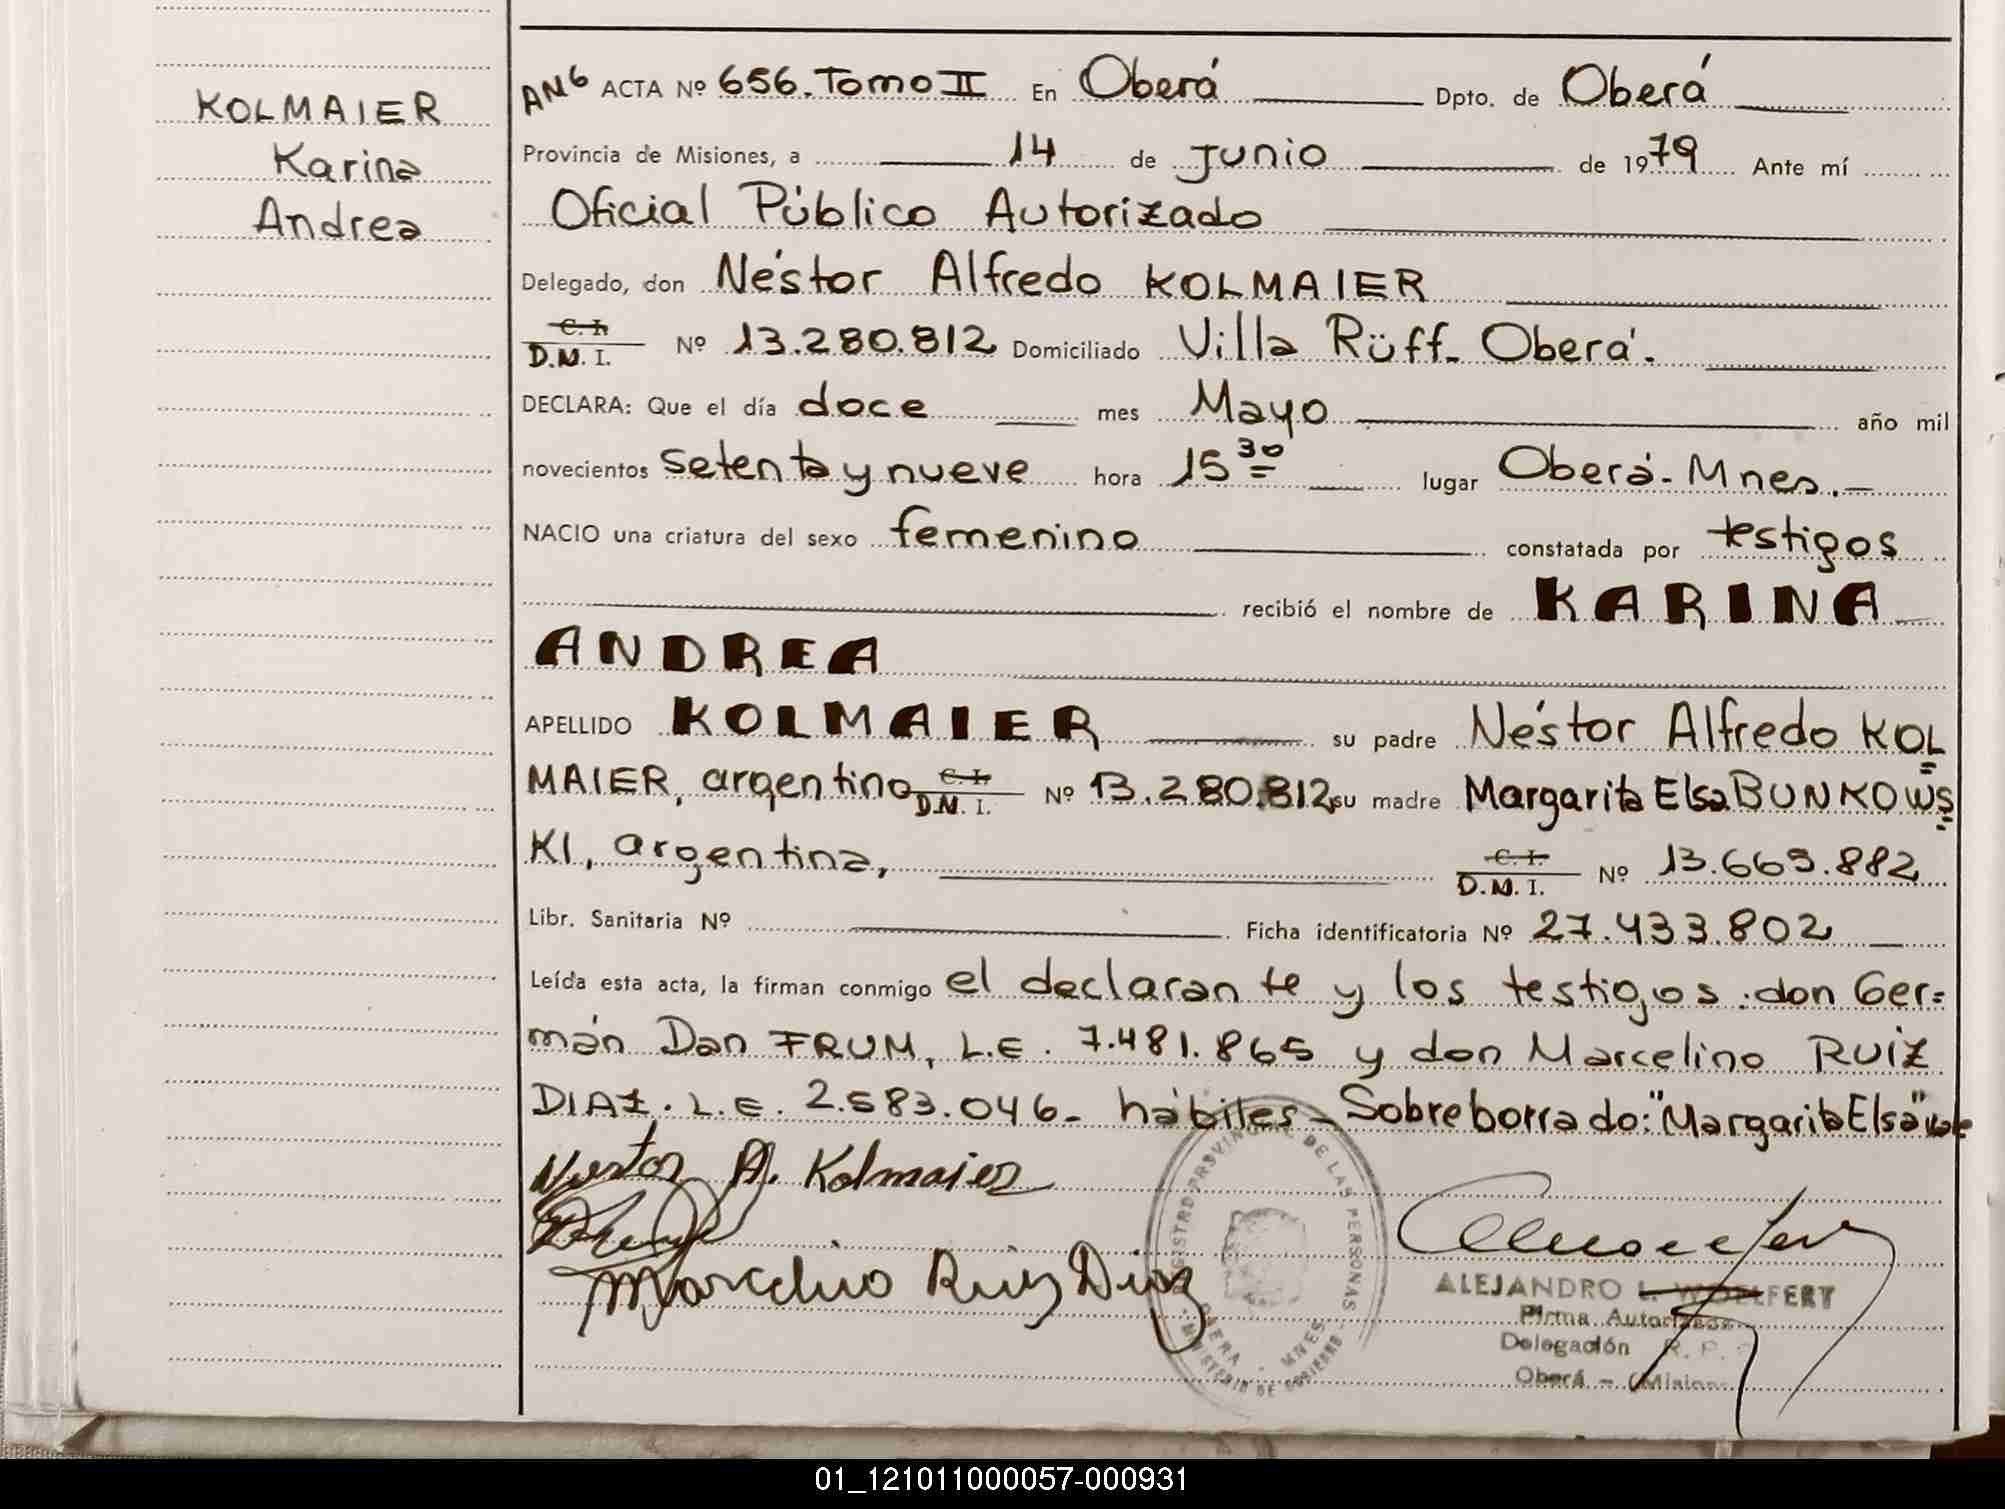 KOLMAIER
Karina
Andrea
AN6 ACTA Nº 656. Tomo II En Oberá Dpto. de Oberá
Provincia de Misiones, a 14 de Junio de 1979 Ante mí
Oficial Público Autorizado
Delegado, don Néstor Alfredo KOLMAIER
C. I.
D.N.I. Nº 13.280.812 Domiciliado Villa Rüff. Oberá.
DECLARA: Que el día doce mes Mayo año mil
novecientos setenta y nueve hora 15 30 lugar Oberá. Mnes.-
NACIO una criatura del sexo femenino constatada por testigos
recibió el nombre de KARINA
ANDREA
APELLIDO KOLMAIER su padre Néstor Alfredo KOL=
MAIER, argentino C. I. D.N.I. Nº 13.280.812, su madre Margarita Elsa BUNKOWS=
KI, argentina, C. I. D.N.I. Nº 13.663.882
Libr. Sanitaria Nº Ficha identificatoria Nº 27.433.802
Leída esta acta, la firman conmigo el declarante y los testigos: don Ger=
mán Dan FRUM, L.E. 7.481.865 y don Marcelino RUIZ
DIAZ. L.E. 2.583.046- hábiles- Sobreborrado: "Margarita Elsa" vale
Nestor A. Kolmaier
Marcelino Ruiz Diaz
REGISTRO PROVINCIAL DE LAS PERSONAS
OBERA - MNES
MINISTERIO DE GOBIERNO
ALEJANDRO L. WOELFERT
Firma Autorizada
Delegación R. P.
Oberá - (Misiones
01_121011000057-000931